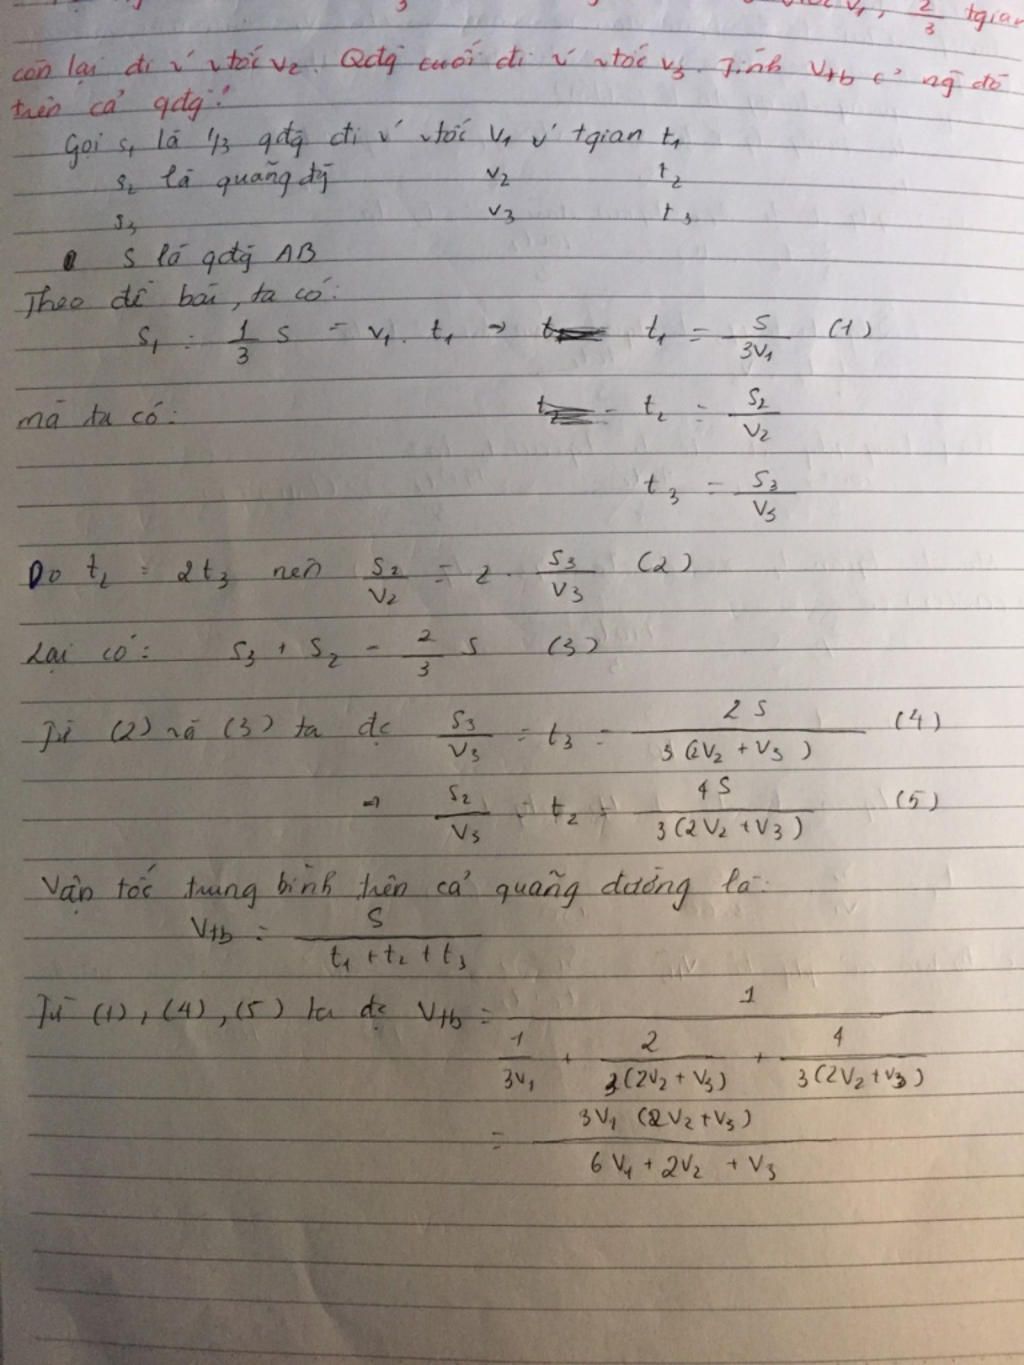 v₁, 2/3 tgian
còn lại đi v́ vtốc v₂. Qđg cuối đi v́ vtốc v₃. Tính Vtb c̉ ng đó
trên cả qđg?
Gọi s₁ là 1/3 qđg đi v́ vtốc v₁ v́ tgian t₁
s₂ là quãng đg v₂ t₂
s₃ v₃ t₃
S là qđg AB
Theo đề bài, ta có:
S₁ = 1/3 S = v₁. t₁ => t₁ = S/3V₁ (1)
mà ta có: t₂ = S₂/V₂
t₃ = S₃/V₃
Do t₂ = 2t₃ nên S₂/V₂ = 2. S₃/V₃ (2)
Lại có: S₃ + S₂ = 2/3 S (3)
Từ (2) và (3) ta đc S₃/V₃ = t₃ = 2S/3(2V₂ + V₃) (4)
=> S₂/V₃ = t₂ = 4S/3(2V₂ + V₃) (5)
Vận tốc trung bình trên cả quãng đường là:
Vtb = S/t₁ + t₂ + t₃
Từ (1), (4), (5) ta đc Vtb = 1/1/3V₁ + 2/3(2V₂ + V₃) + 4/3(2V₂ + V₃)
= 3V₁ (2V₂ + V₃)/6V₁ + 2V₂ + V₃